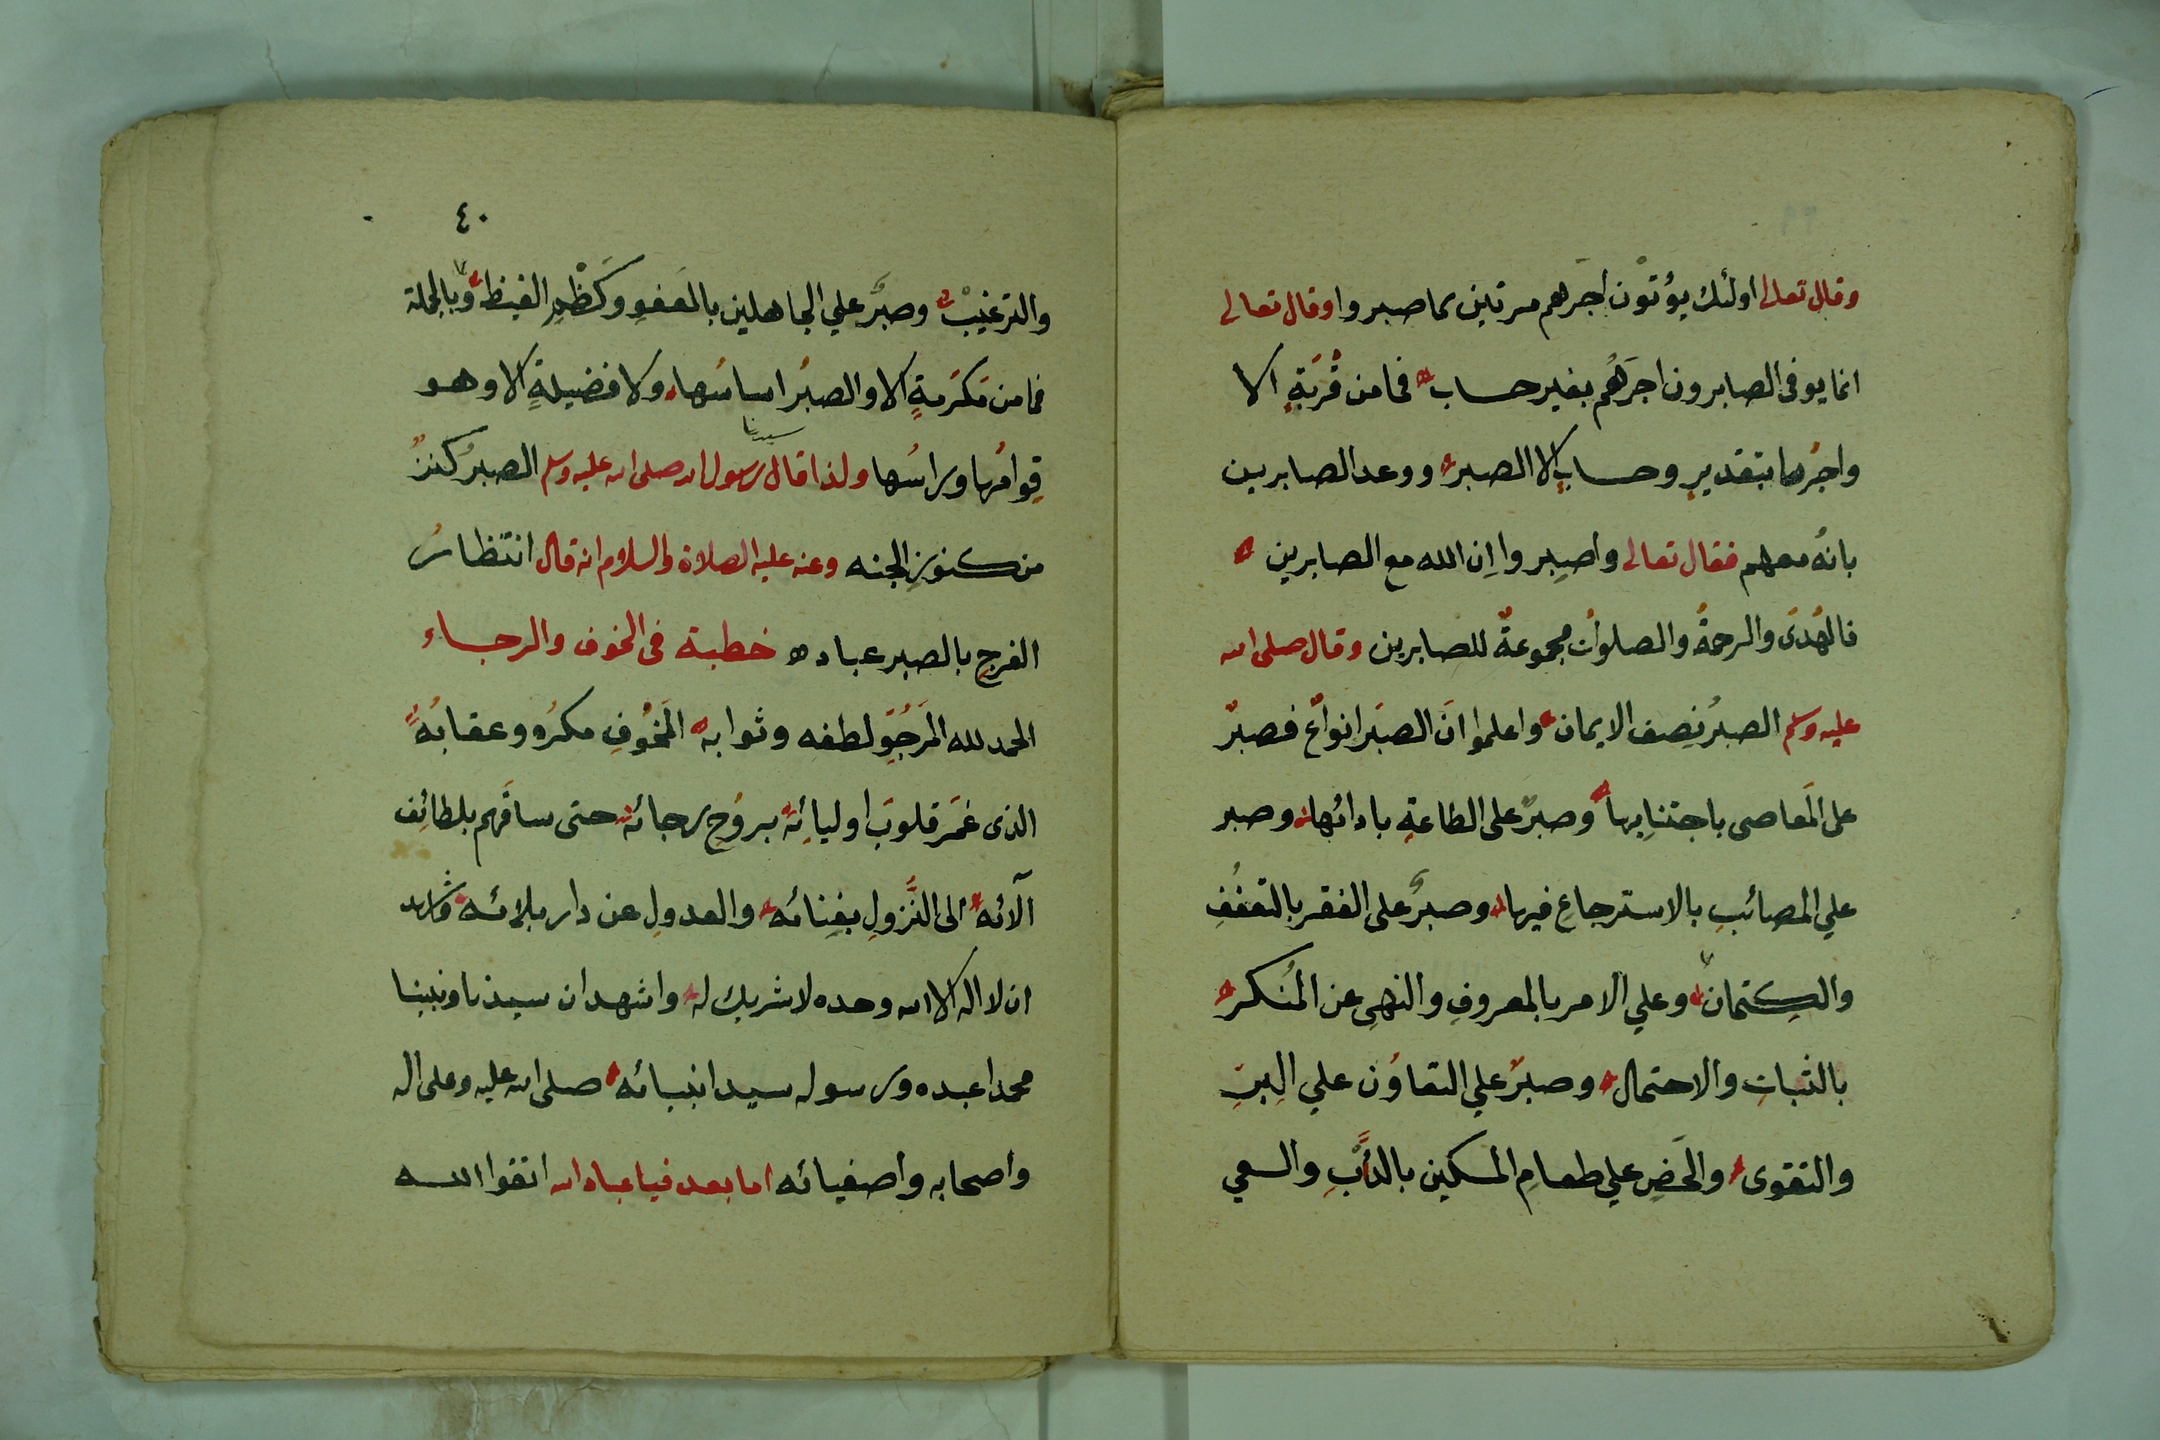 وقال تعالى اولئك يؤتون اجرهم مرتين بما صبروا وقال تعالى
انما يوفى الصابرون اجرَهُم بغير حساب فما من قُربَةٍ الا
واجرُها بتقديرٍ وحسابٍ الا الصبر ووعد الصابرين
بانهُ معهم فقال تعالى واصبروا اِن الله مع الصابرين
فالهُدىَ والرحمةُ والصلواتُ مجموعةٌ للصابرين وقال صلى الله
عليه وسلم الصبرُ نِصف الايمان واعلموا انَ الصبَر انواعٌ فصبرٌ
على المَعاصى باجتنابِها وصبرٌ على الطاعةِ بادائها وصبر
علي المصائبِ بالاسترجاعِ فيها وصبرٌ على الفقر بالتعَفُفِ
والكِتمان وعلي الامر بالمعروفِ والنهىِ عن المُنكر
بالثباتِ والاحتمال وصبرٌ علي التعاوُن علي البِرِ
والتقوى والحَضِ علي طعامِ المسكين بالدَأبِ والسعي
٤٠
والترغيبْ وصبرٌ علي الجاهلين بالعَفوِ وكَظْمِ الغيظ وبالجملة
فما من مَكرَمةٍ الا والصبرُ اساسُها ولا فضيلةٍ الا وهو
قِوامُها وراسُها ولذا قال سيدنا رسول الله صلى الله عليه وسلم الصبرُ كنزٌ
من كنوزِ الجنه وعنه عليه الصلاة والسلام انه قال انتظارُ
الفرجِ بالصبر عباده خطبة فى الخوف والرجاء
الحمد لله المَرجُوِّ لطفه وثوابه المَخُوفِ مكرُه وعقابُهُ
الذى عَمَر قلوبَ اوليائِه بروُحِ رجائه حتى ساقَهم بلطائِف
آلائه الى النُّزولِ بفِنائه والعدولِ عن دار بلائه واشهد
ان لا اله الا الله وحده لا شريك له واشهد ان سيدنا ونبينا
محمدا عبده ورسوله سيد انبيائه صلى الله عليه وعلى اله
واصحابه واصفيائه اما بعد فيا عباد الله اتقوا الله